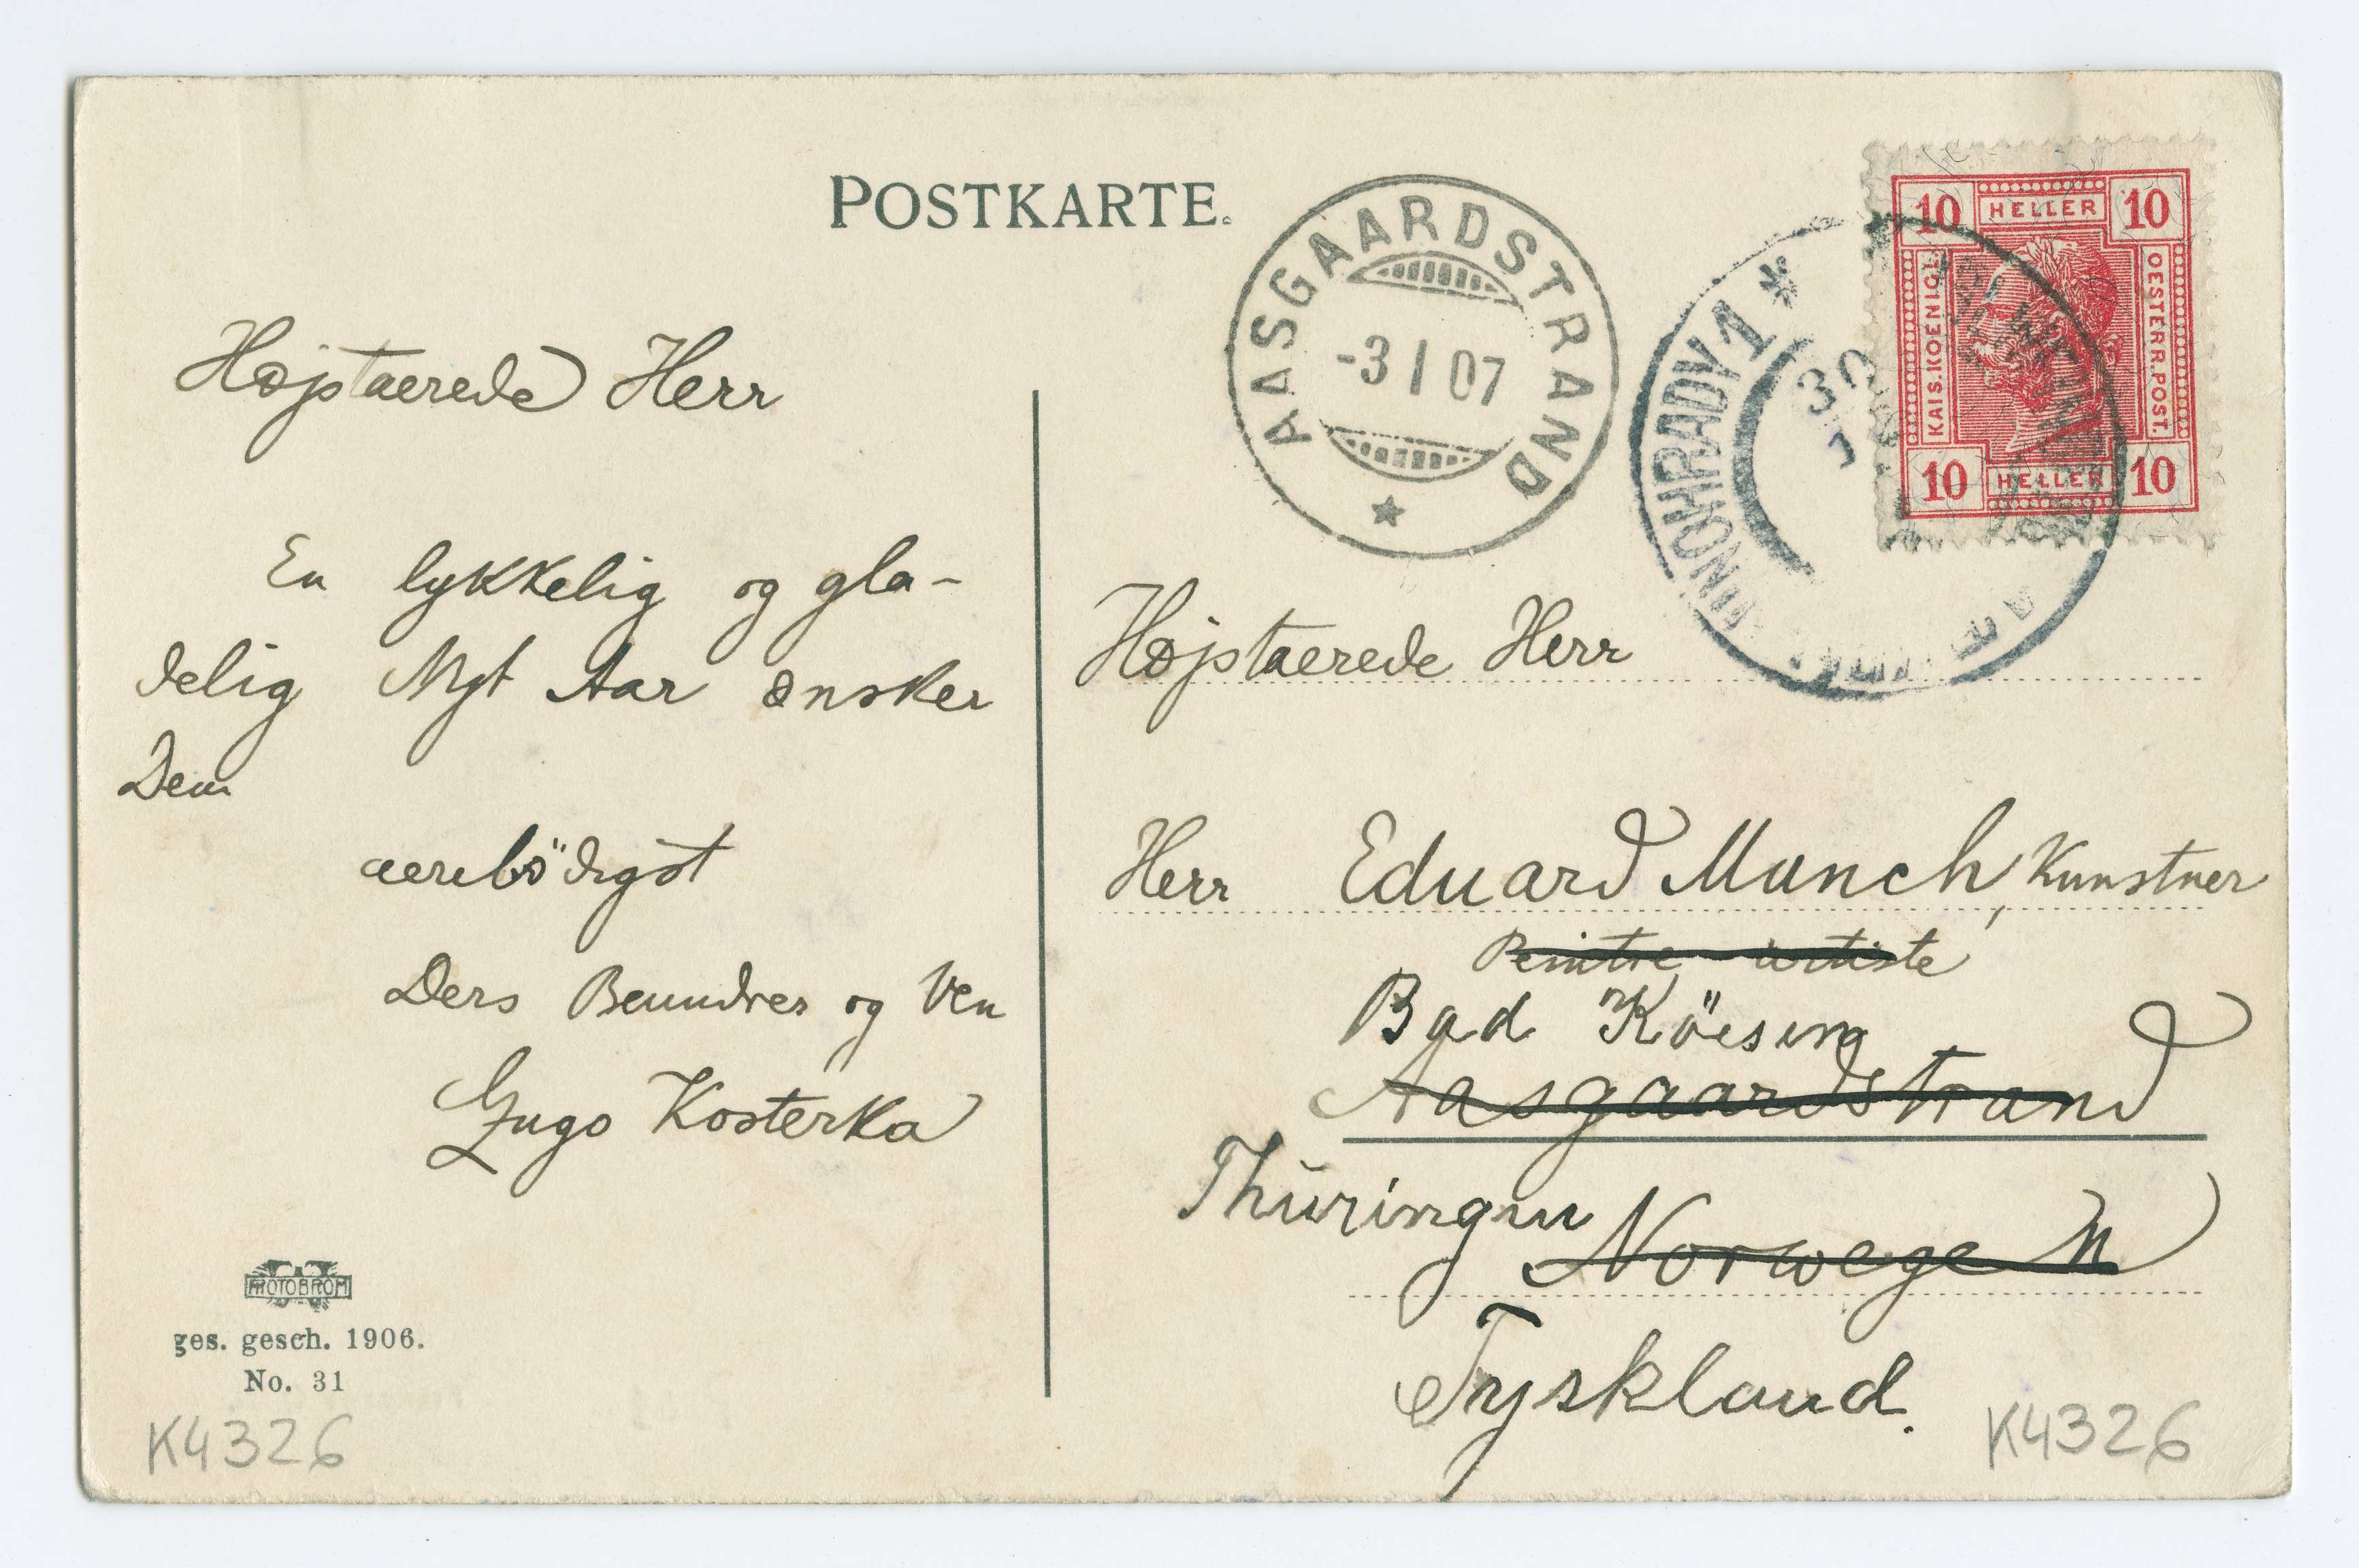 POSTKARTE.
AASGAARDSTRAND
-3 I 07
10 HELLER 10
KAIS. KOENIGL.
OESTERR. POST.
10 HELLER 10
1
30
Højstaerede Herr
En lykkelig og gla-
delig Nyt Aar ønsker
Dem
aerebödigst
Ders Beundrer og Ven
Hugo Kosterka
PHOTOBROM
ges. gesch. 1906.
No. 31
K4326
Højstaerede Herr
Herr Eduard Munch, Kunstner
Peintre-artiste
Bad Köesen
Aasgaardstrand
Thüringen Norwegen
Tyskland.
K4326